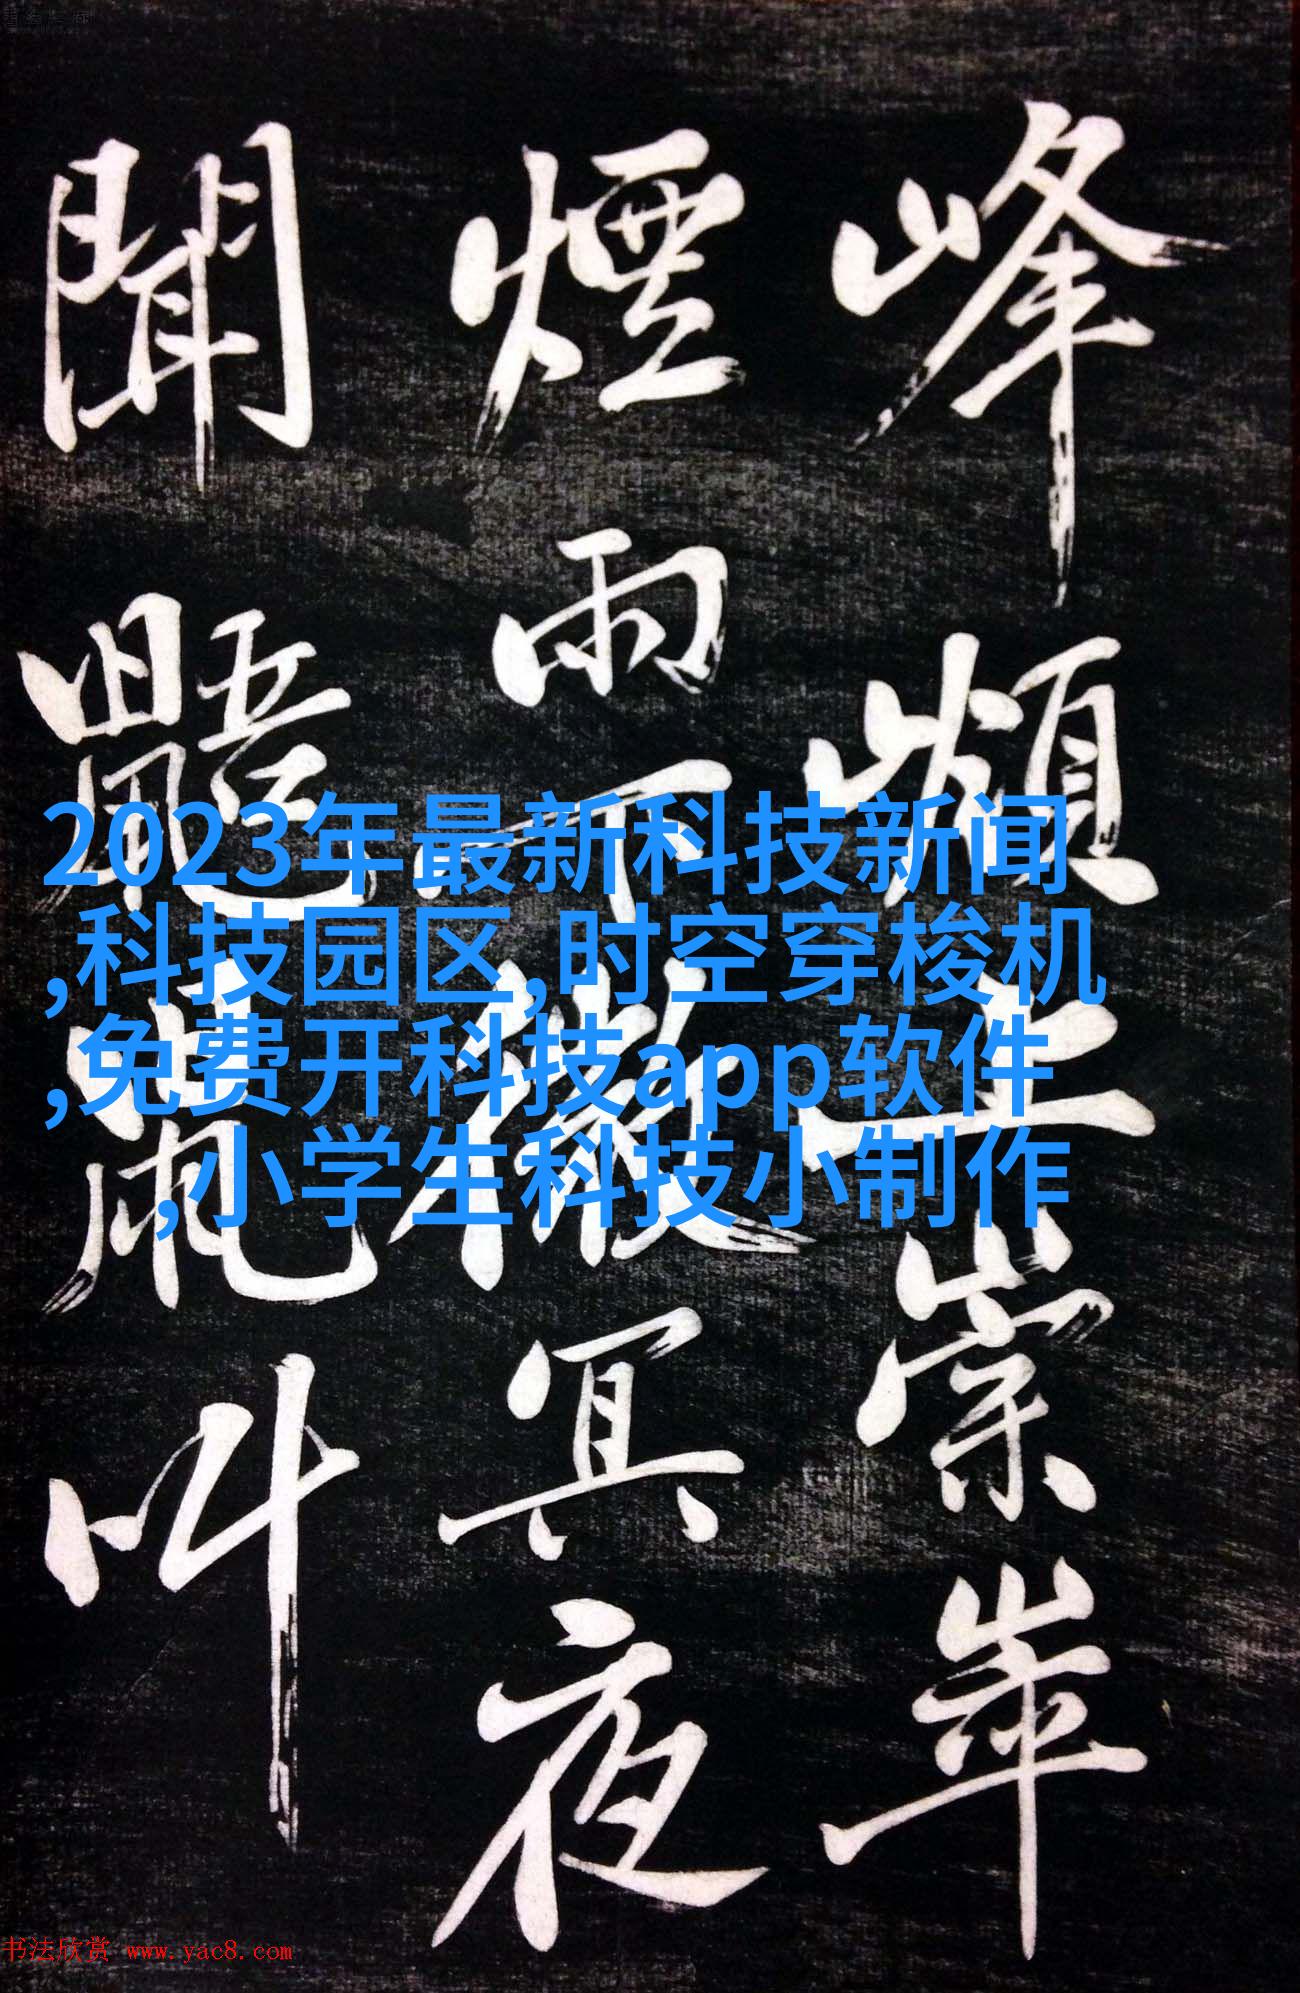 峰上崇崒
煙雨下微冥夜
聞鼯鼠叫
2023年最新科技新闻
,科技园区,时空穿梭机
,免费开科技app软件
,小学生科技小制作
书法欣赏 www.yac8.com